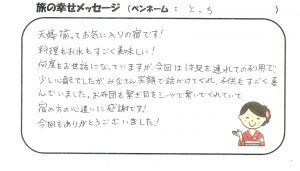 旅の幸せメッセージ (ペンネーム : とっち )
夫婦揃ってお気に入りの宿です!
料理もお水もすごく美味しい!
何度もお世話になっていますが、今回は1才児を連れての利用で
少し心配でしたがみなさん笑顔で話かけてくれ、子供もすごく喜
んでいました。お布団も繋ぎ目をシーツで繋いでくれていて
宿の方の心遣いに感謝です!
今回もありがとうございました!